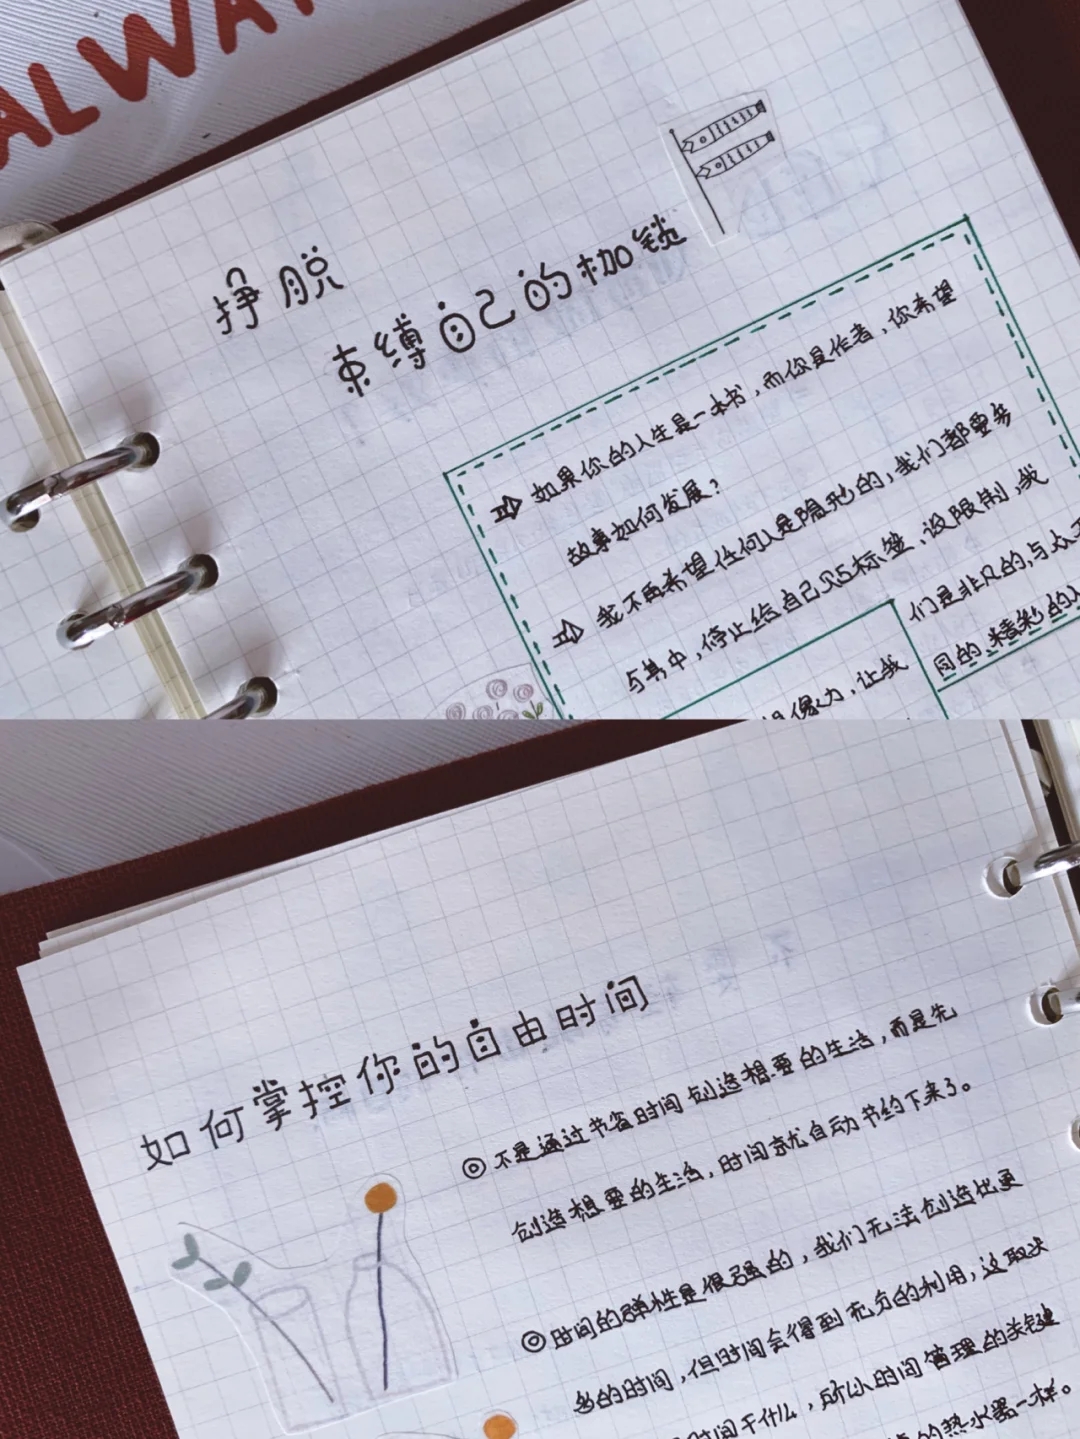 ALWA
挣脱
束缚自己的枷锁
如果你的人生是一本书，而你是作者，你希望
故事如何发展？
我不再希望任何人是隐形的，我们都要参
与其中，停止给自己贴标签，设限制，我
们是非凡的，与众不
同的，精彩的人
想像力，让我
如何掌控你的自由时间
◎不是通过节省时间创造想要的生活，而是先
创造想要的生活，时间就自动节约下来了。
◎时间的弹性是很强的，我们无法创造出更
多的时间，但时间会得到充分的利用，这取决
时间干什么，所以时间管理的关键
的热水器一样。